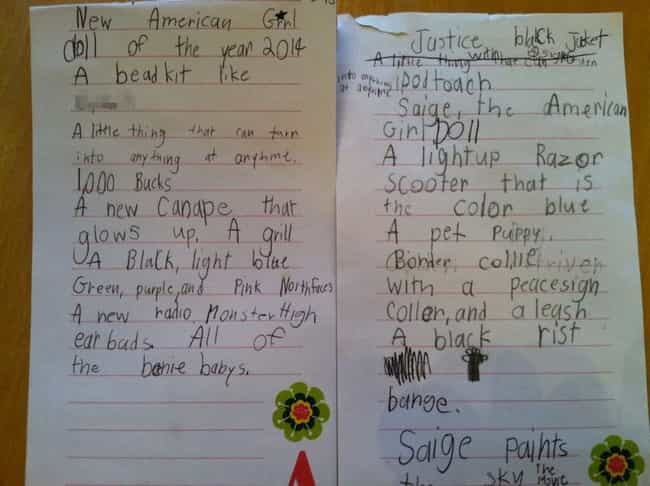 New American Girl
doll of the year 2014
A beadkit like
A little thing that can turn
into anything at anytime.
1,000 Bucks
A new Canape that
glows up. A grill
A Black, light blue
Green, purple, and Pink Northfaces
A new radio Monster High
ear bads. All of
the bonie babys.
Justice black Jaket
A little thing that can
into anything
at anytime
ipodtoach
Saige, the American
Girl Doll
A lightup Razor
Scooter that is
the color blue
A pet puippy.
(Border collie
with a peacesign
Coller, and a leash
A black rist
bange.
Saige paints
the sky The
Movie